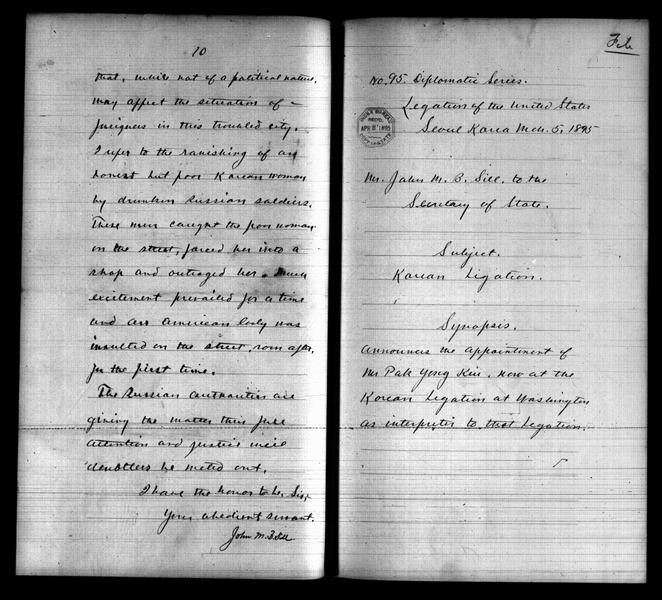 10
that, while not of a political nature,
may affect the situation of
foreigners in this troubled city.
I refer to the ravishing of an
honest but poor Korean woman
by drunken Russian soldiers.
These men caught the poor woman
on the street, forced her into a
shop and outraged her. Much
excitement prevailed for a time
and an American lady was
insulted on the street, soon after,
for the first time.
The Russian authorities are
giving the matter their full
attention and justice will
doubtless be meted out.
I have the honor to be, Sir,
Your obedient servant.
John M. B. Sill
File
No. 95. Diplomatic Series.
Legation of the United States
Seoul Korea Mch. 5, 1895
INDEX BUREAU
RECEIVED
APR 8 1895
Mr. John M. B. Sill, to the
Secretary of State.
Subject.
Korean Legation.
Synopsis.
Announces the appointment of
Mr Pak Yong Kiu, now at the
Korean Legation at Washington
as interpreter to that Legation.